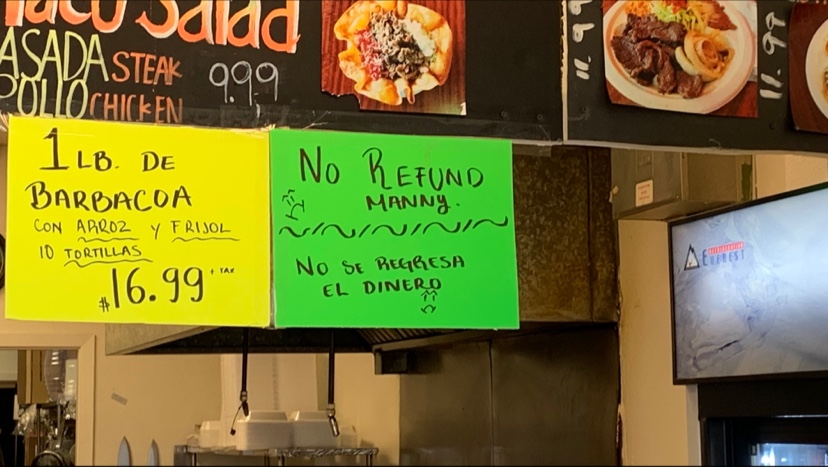 Taco Salad
ASADA STEAK 9.99
POLLO CHICKEN
11.99
11.99
1 LB. DE
BARBACOA
CON ARROZ Y FRIJOL
10 TORTILLAS
$16.99 + TAX
No REFUND
MANNY.
NO SE REGRESA
EL DINERO
REFRIGERATION
EVEREST